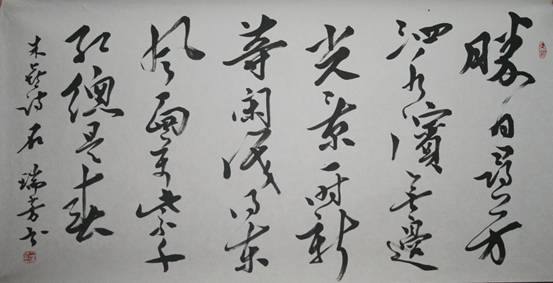 勝日尋芳
泗水濱無邊
光景一時新
等閑識得東
風面萬紫千
紅總是春
朱熹詩 石瑞芳书